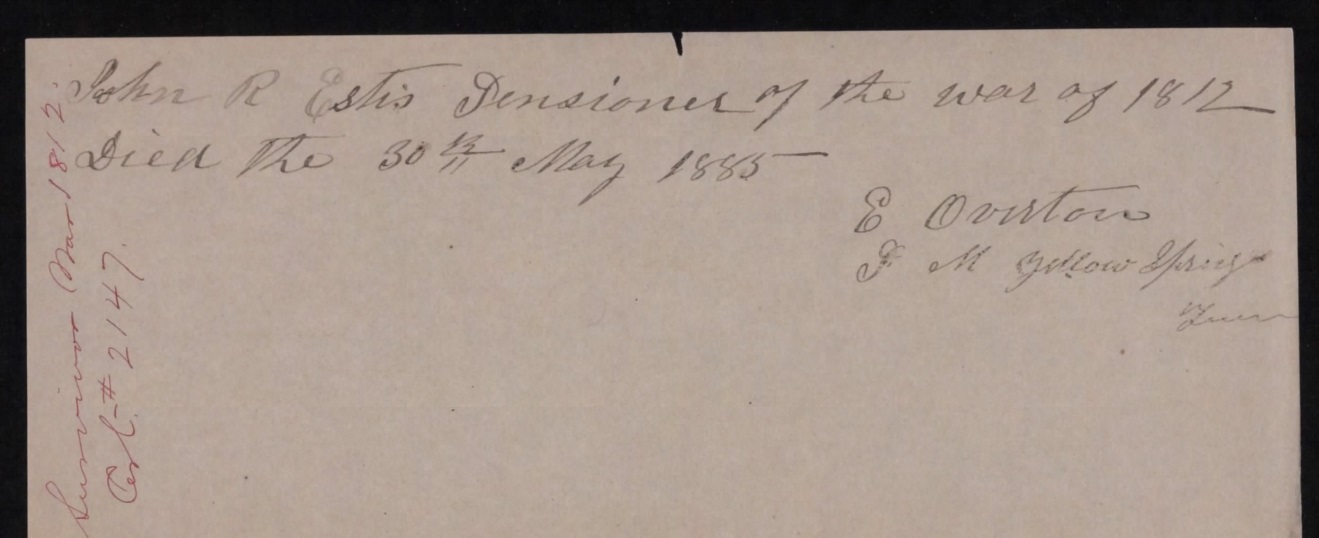 John R Estis Pensioner of the war of 1812
Died the 30th May 1885
E Overton
P M Yellow Springs
Tenn
Survivor War 1812.
Ctf. # 2147.